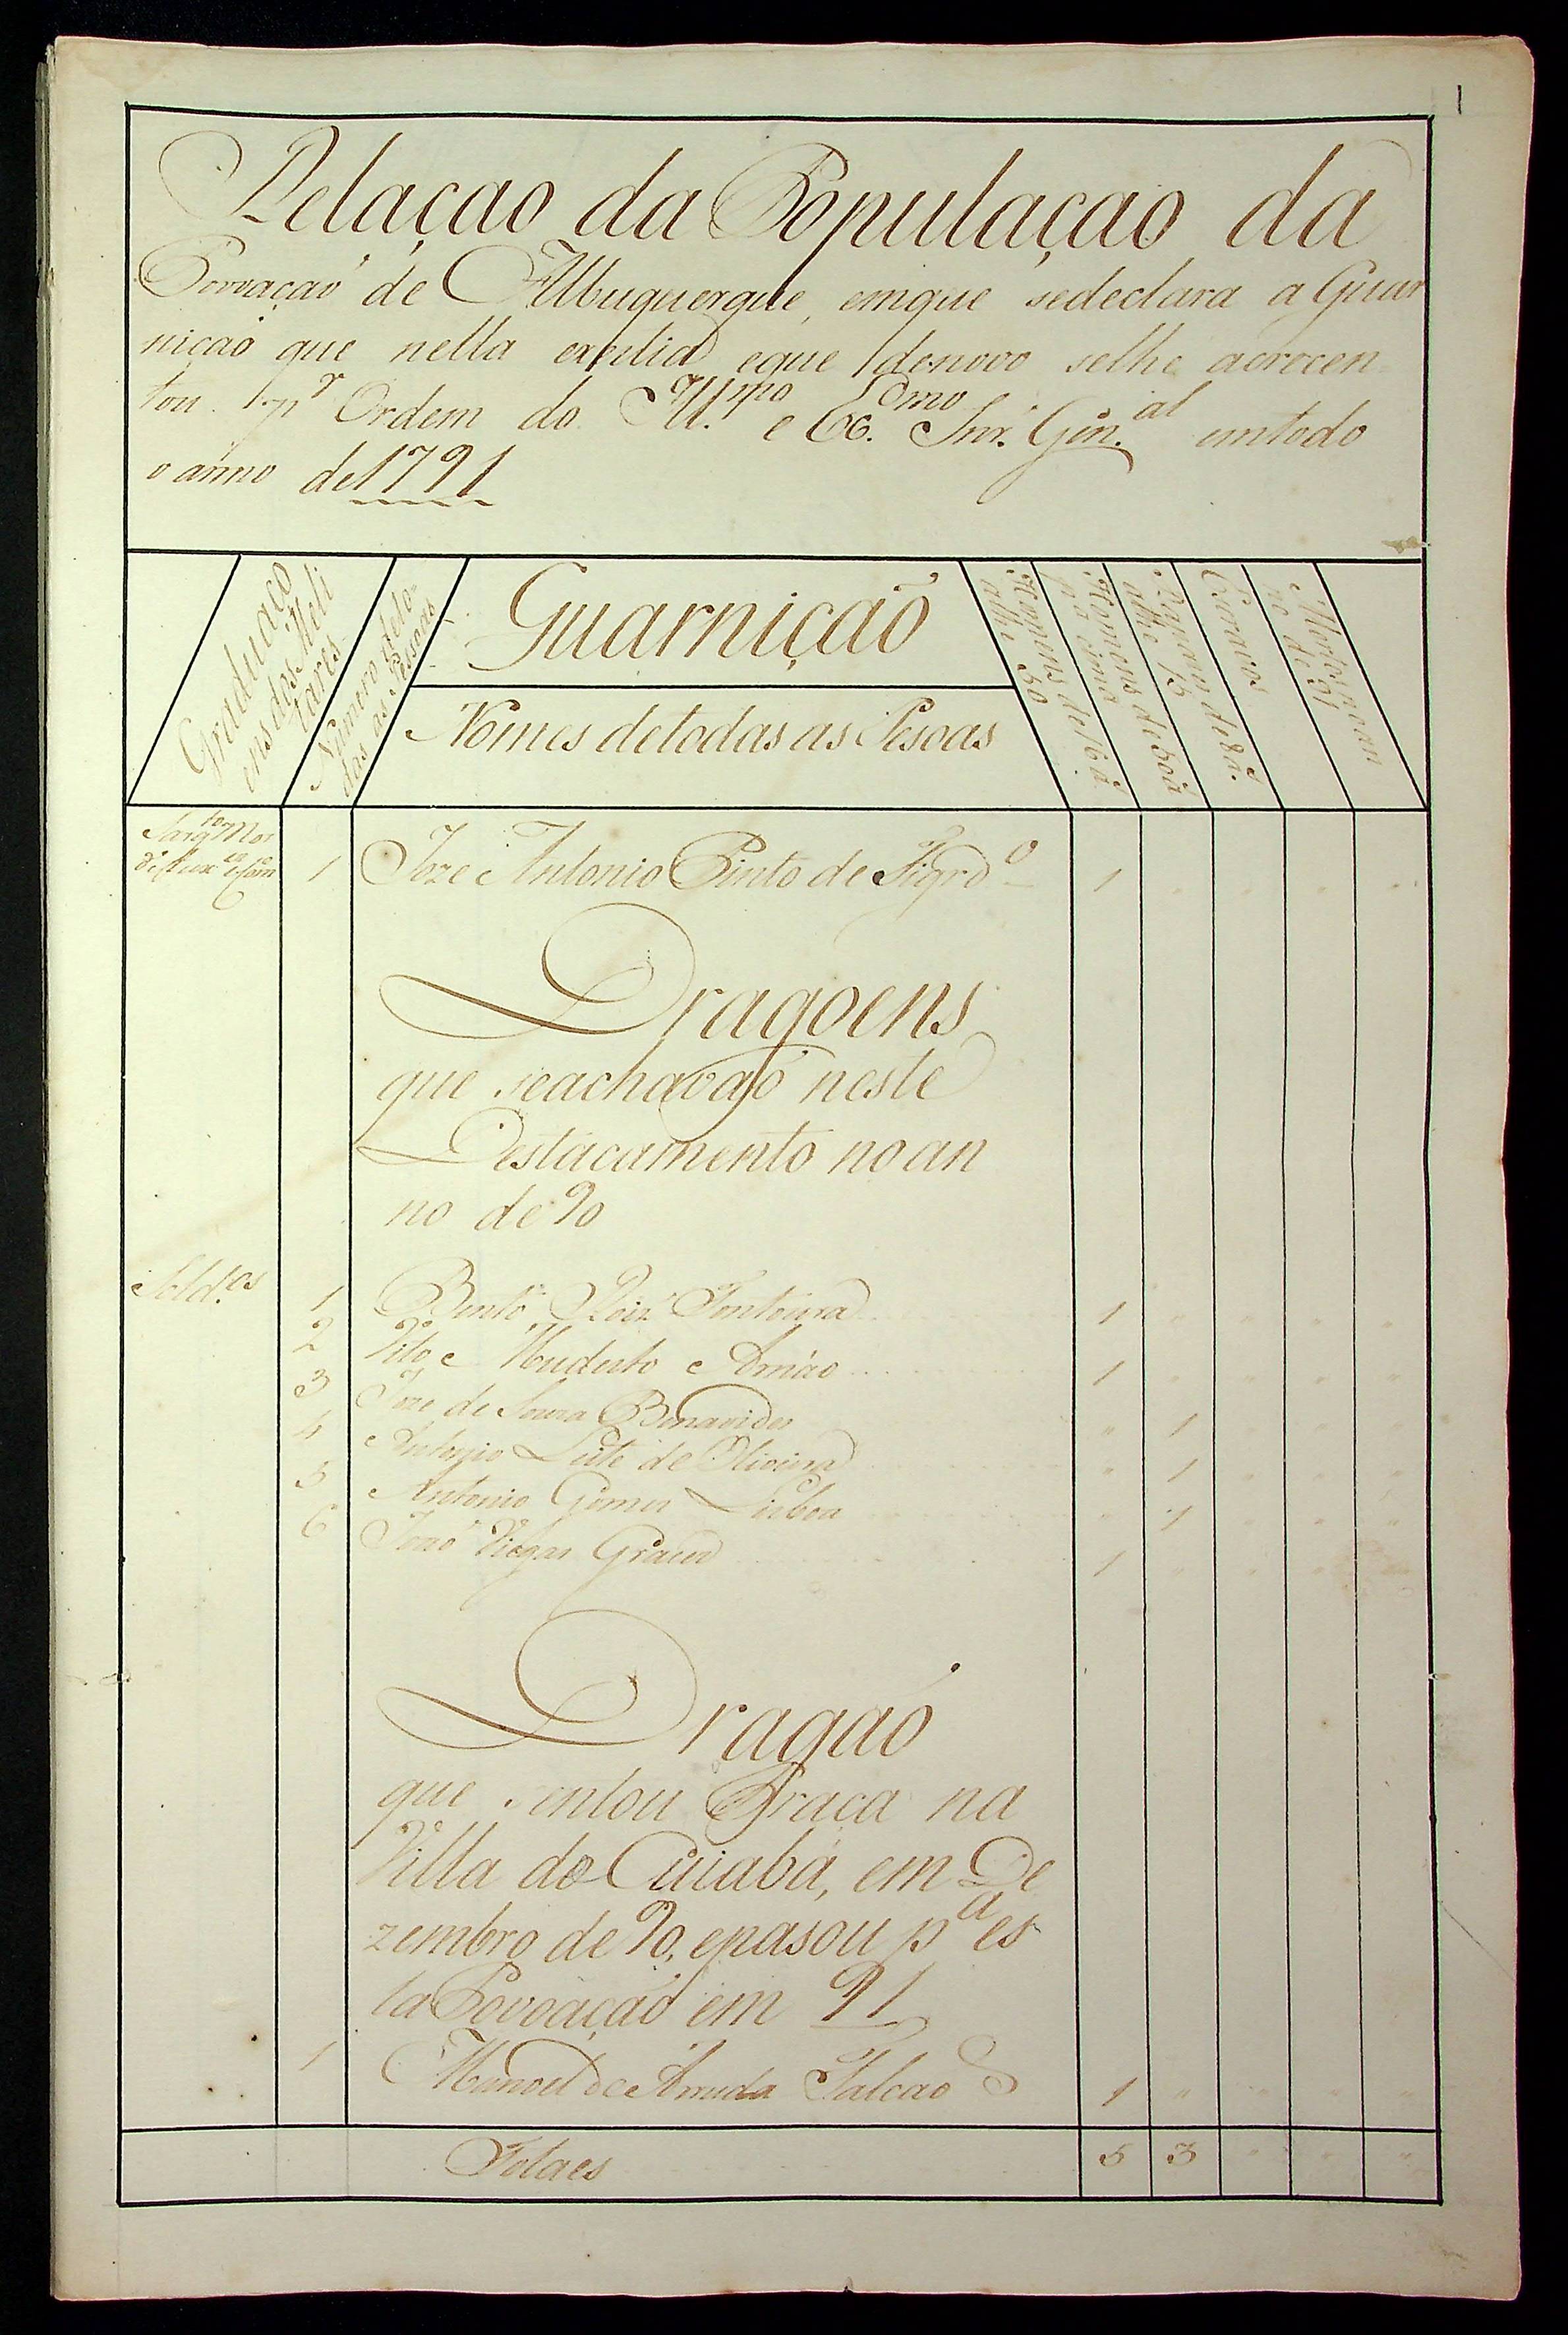 1
Relaçao da Populaçao da
Povoaçaõ de Albuquerque, emque sedeclara a Guar
niçaõ que nella existia eque denovo selhe acrecen
tou. pr Ordem do Ill.mo e Ex.mo Snr. Gen.al emtodo
o anno de 1791
Graduaço
ens dos Meli
tares
Numero deto
das as Pesoas
Guarniçaõ
Nomes detodas as Pesoas
Homens de 16 á
athe 50
Homens de 50 á
pª cima
Rapazes de 8 á
athe 15
Escravos
Mortos no an
no de 91
Sargto Mor
de Aux.es e Com 1 Joze Antonio Pinto de Figrdo 1 " " " "
Dragoens
que seachavaõ neste
Destacamento no an
no de 90
Sold.os 1 Bento Roiz' Fontoura 1 " " " "
2 Vito Modesto 1 " " " "
3 Joze de Souza Benavides " 1 " " "
4 Antonio Leite de Oliveira " 1 " " "
5 Antonio Gomes Lisboa " 1 " " "
6 Joaõ Viegas 1 " " " "
Dragaõ
que sentou Praça na
Villa do Cuiabá, em De
zembro de 90, epasou pª es
ta Povoaçaõ em 91
1 Manoel de Arruda Falcao 1 " " " "
Totaes 5 3 " " "